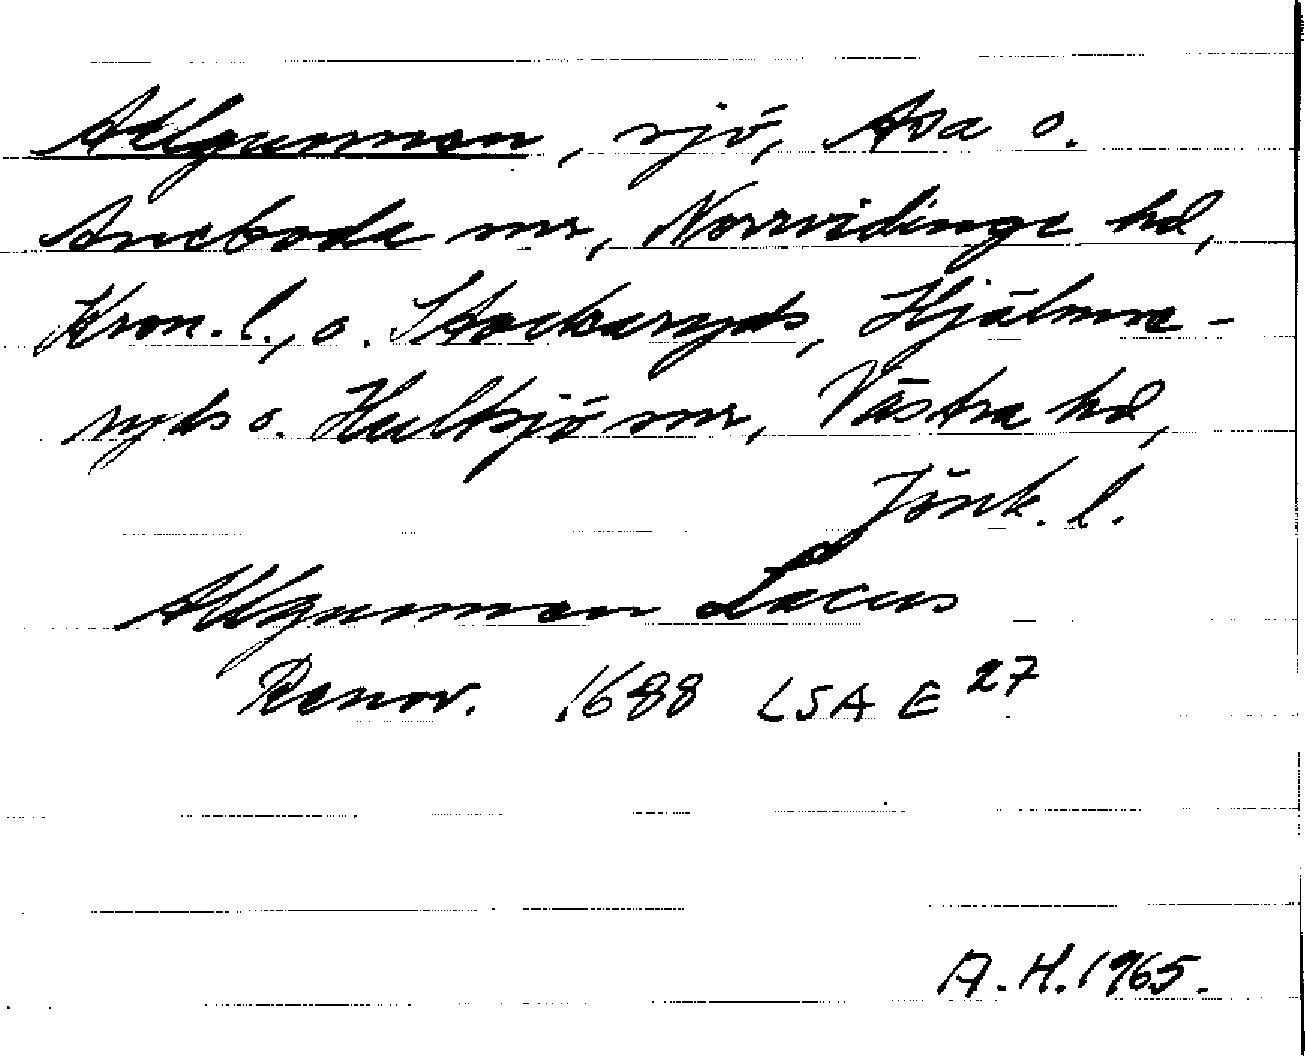 Allgunnen, sjö, Asa o.
Aneboda snr, Norrvidinge hd,
Kron. l., o. Stockaryds, Hjälmse-
ryds o. Hultsjö snr, Västra hd,
Jönk. l.
Allgunnen Lacus
Renov. 1688 LSA E 27
A. H. 1965.